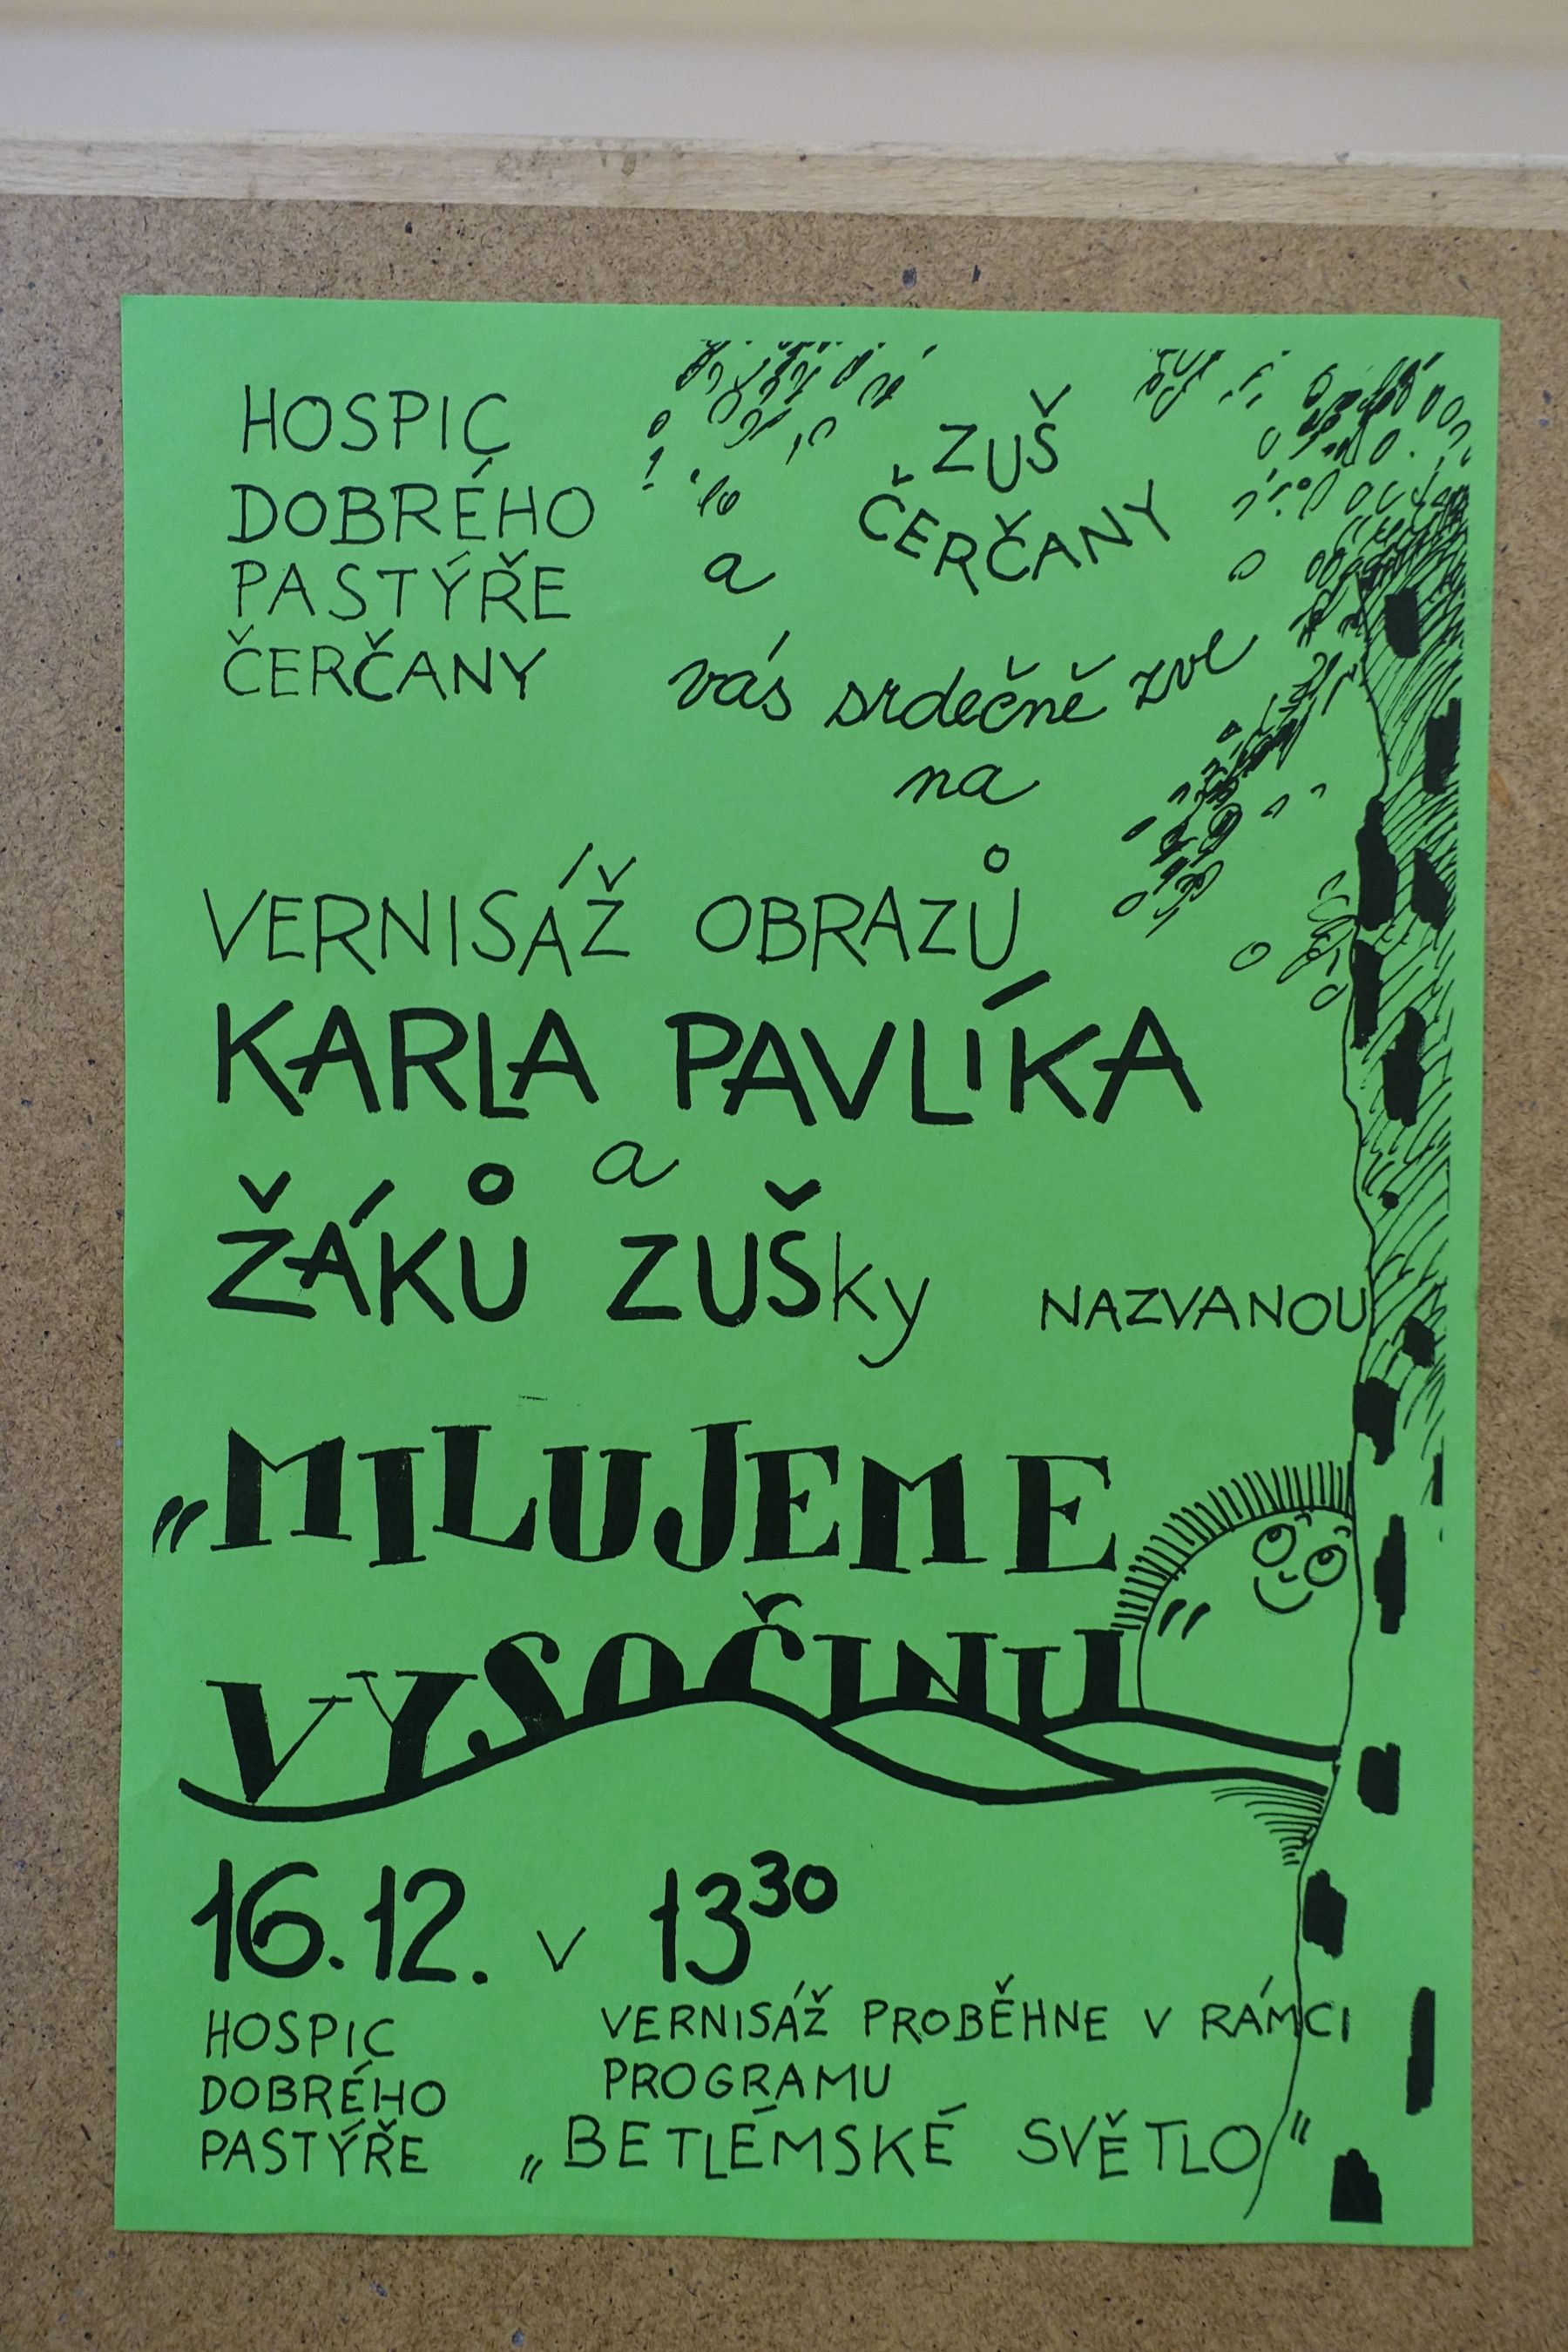 HOSPIC
DOBRÉHO
PASTÝŘE
ČERČANY
a
ZUŠ
ČERČANY
vás srdečně zve
na
VERNISÁŽ OBRAZŮ
KARLA PAVLÍKA
a
ŽÁKŮ ZUŠky NAZVANOU
„MILUJEME
VYSOČINU"
16.12. v 13³⁰
HOSPIC
DOBRÉHO
PASTÝŘE
VERNISÁŽ PROBĚHNE V RÁMCI
PROGRAMU
„BETLÉMSKÉ SVĚTLO"